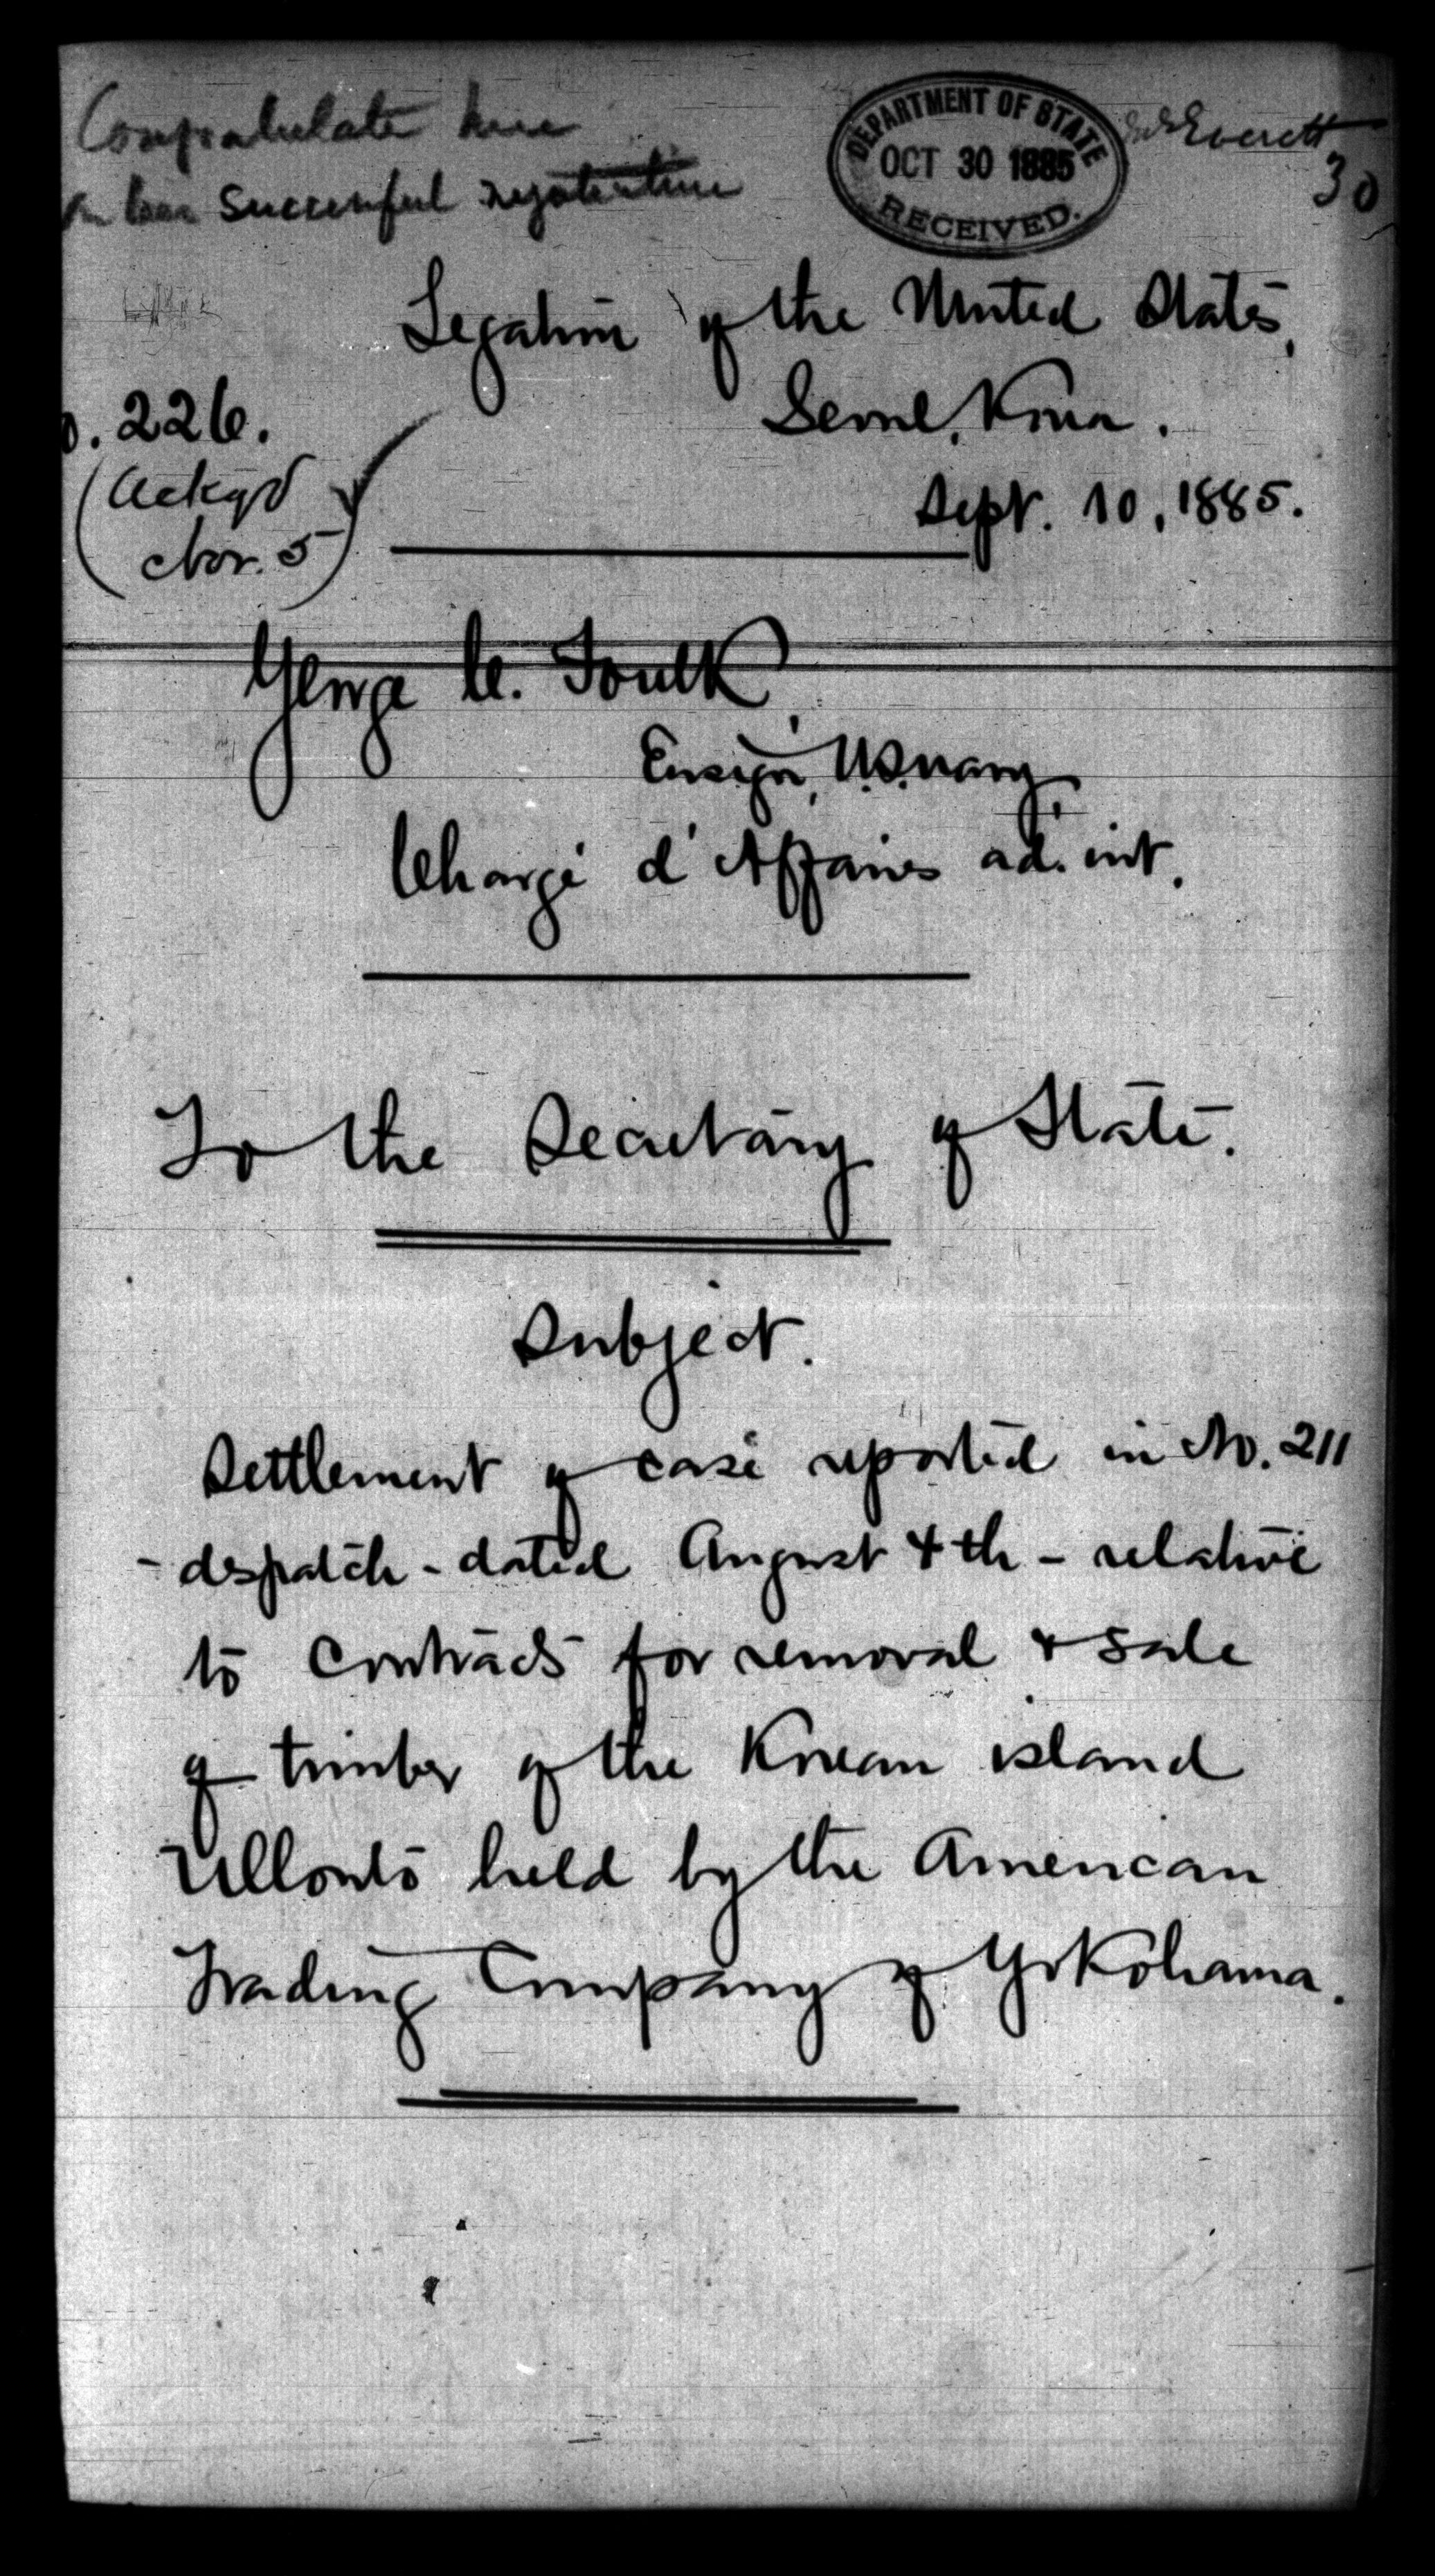 Congratulate him
on his successful negotiation
DEPARTMENT OF STATE
OCT 30 1885
RECEIVED.
Everett
30
Legation of the United States,
Seoul, Korea.
o. 226.
(Ackgd
Nov. 5)
Sept. 10, 1885.
George C. Foulk,
Ensign, U.S. Navy,
Chargé d'Affaires ad. int.
To the Secretary of State.
Subject.
Settlement of case reported in No. 211
- dspatch - dated August 4th - relative
to contracts for removal & sale
of timber of the Korean island
Ullondo held by the American
Trading Company of Yokohama.